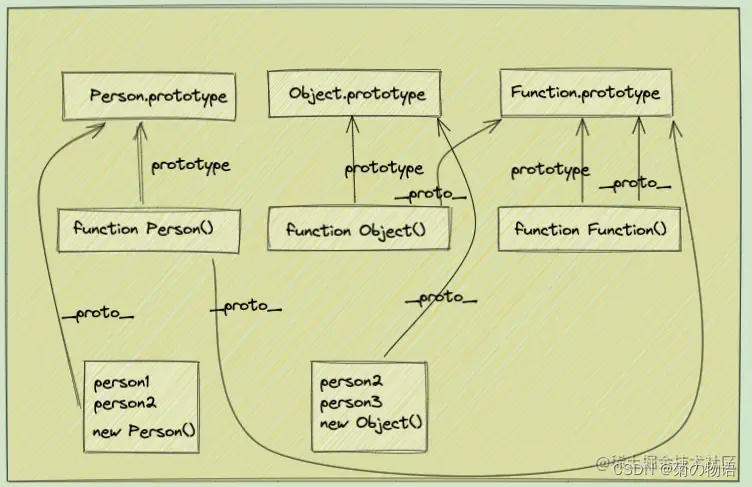 Person.prototype
Object.prototype
Function.prototype
prototype
prototype
prototype
__proto__
__proto__
function Person()
function Object()
function Function()
__proto__
__proto__
__proto__
person1
person2
new Person()
person2
person3
new Object()
@稀土掘金技术社区
CSDN @菊の物语